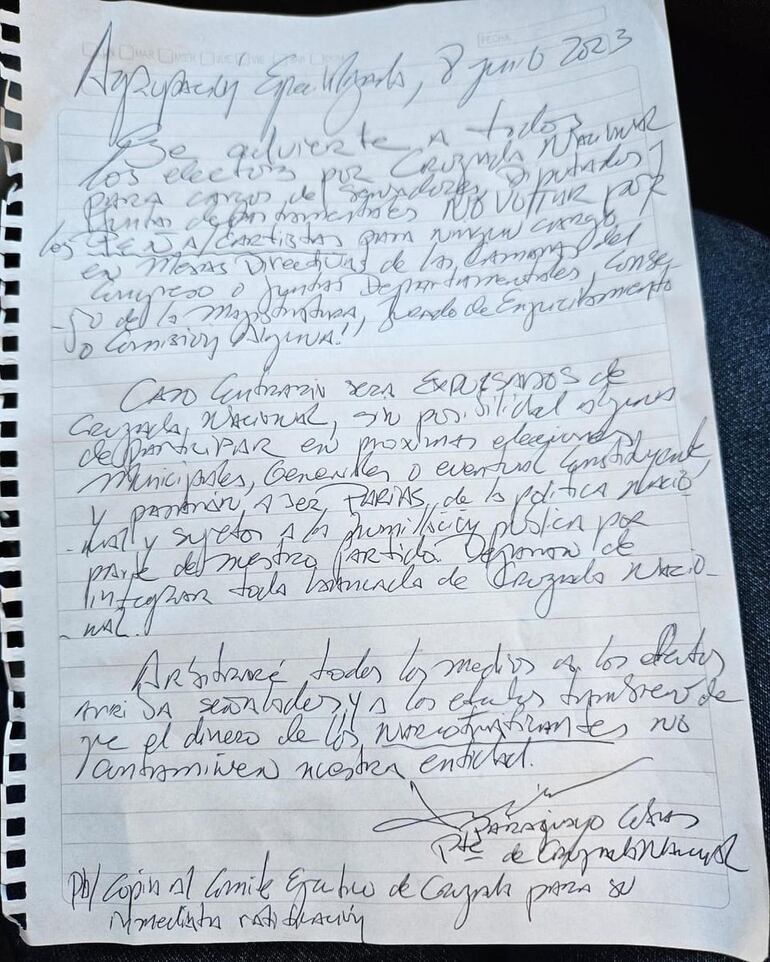 MAR MIER JUE VIE
FECHA
Agrupación Especializada, 8 junio 2023
Se advierte a todos
los electos por Cruzada Nacional
para cargos de Senadores, Diputados y
Juntas departamentales NO VOTAR por
los cartistas para ningun cargo
en Mesas Directivas de las Camaras del
Congreso o Juntas Departamentales, Conse-
jo de la Magistratura, Jurado de Enjuiciamiento
o Comisión Alguna!!
Caso Contrario sera EXPULSADOS de
Cruzada Nacional, sin posibilidad alguna
de participar en proximas elecciones
Municipales, Generales o eventual Constituyente,
y pasaran a ser PARIAS de la politica nacio
-nal y sujetos a la humillación pública por
parte de nuestro Partido. Dejaran de
integrar toda bancada de Cruzada Nacio-
-nal.
Arbitraré todos los medios a los efectos
arriba señalados y a los efectos tambien de
que el dinero de los narcotraficantes no
contaminen nuestra entidad.
Paraguayo Cubas
Pte de Cruzada Nacional
Pd/ Copia al Comite Ejecutivo de Cruzada para su
inmediata ratificación